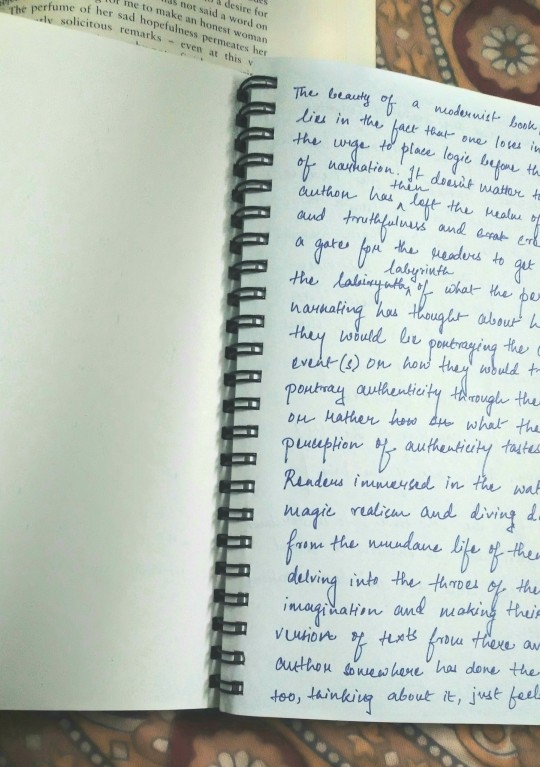 a desire for
has not said a word on
for me to make an honest woman
The perfume of her sad hopefulness permeates her
solicitous remarks – even at this
The beauty of a modernist book
lies in the fact that one loses in
the urge to place logic before th
of narration. It doesn't matter t
then
author has ^ left the realm of
and truthfulness and cre
a gates for the readers to get
labyrinth
the labirynth ^ of what the pe
narrating has thought about h
they would be portraying the
event(s) or how they would tr
portray authenticity through the
or rather how or what the
perception of authenticity tastes
Readers immersed in the wat
magic realism and diving d
from the mundane life of thei
delving into the throes of the
imagination and making their
version of texts from there
author somewhere has done the
too, thinking about it, just feel